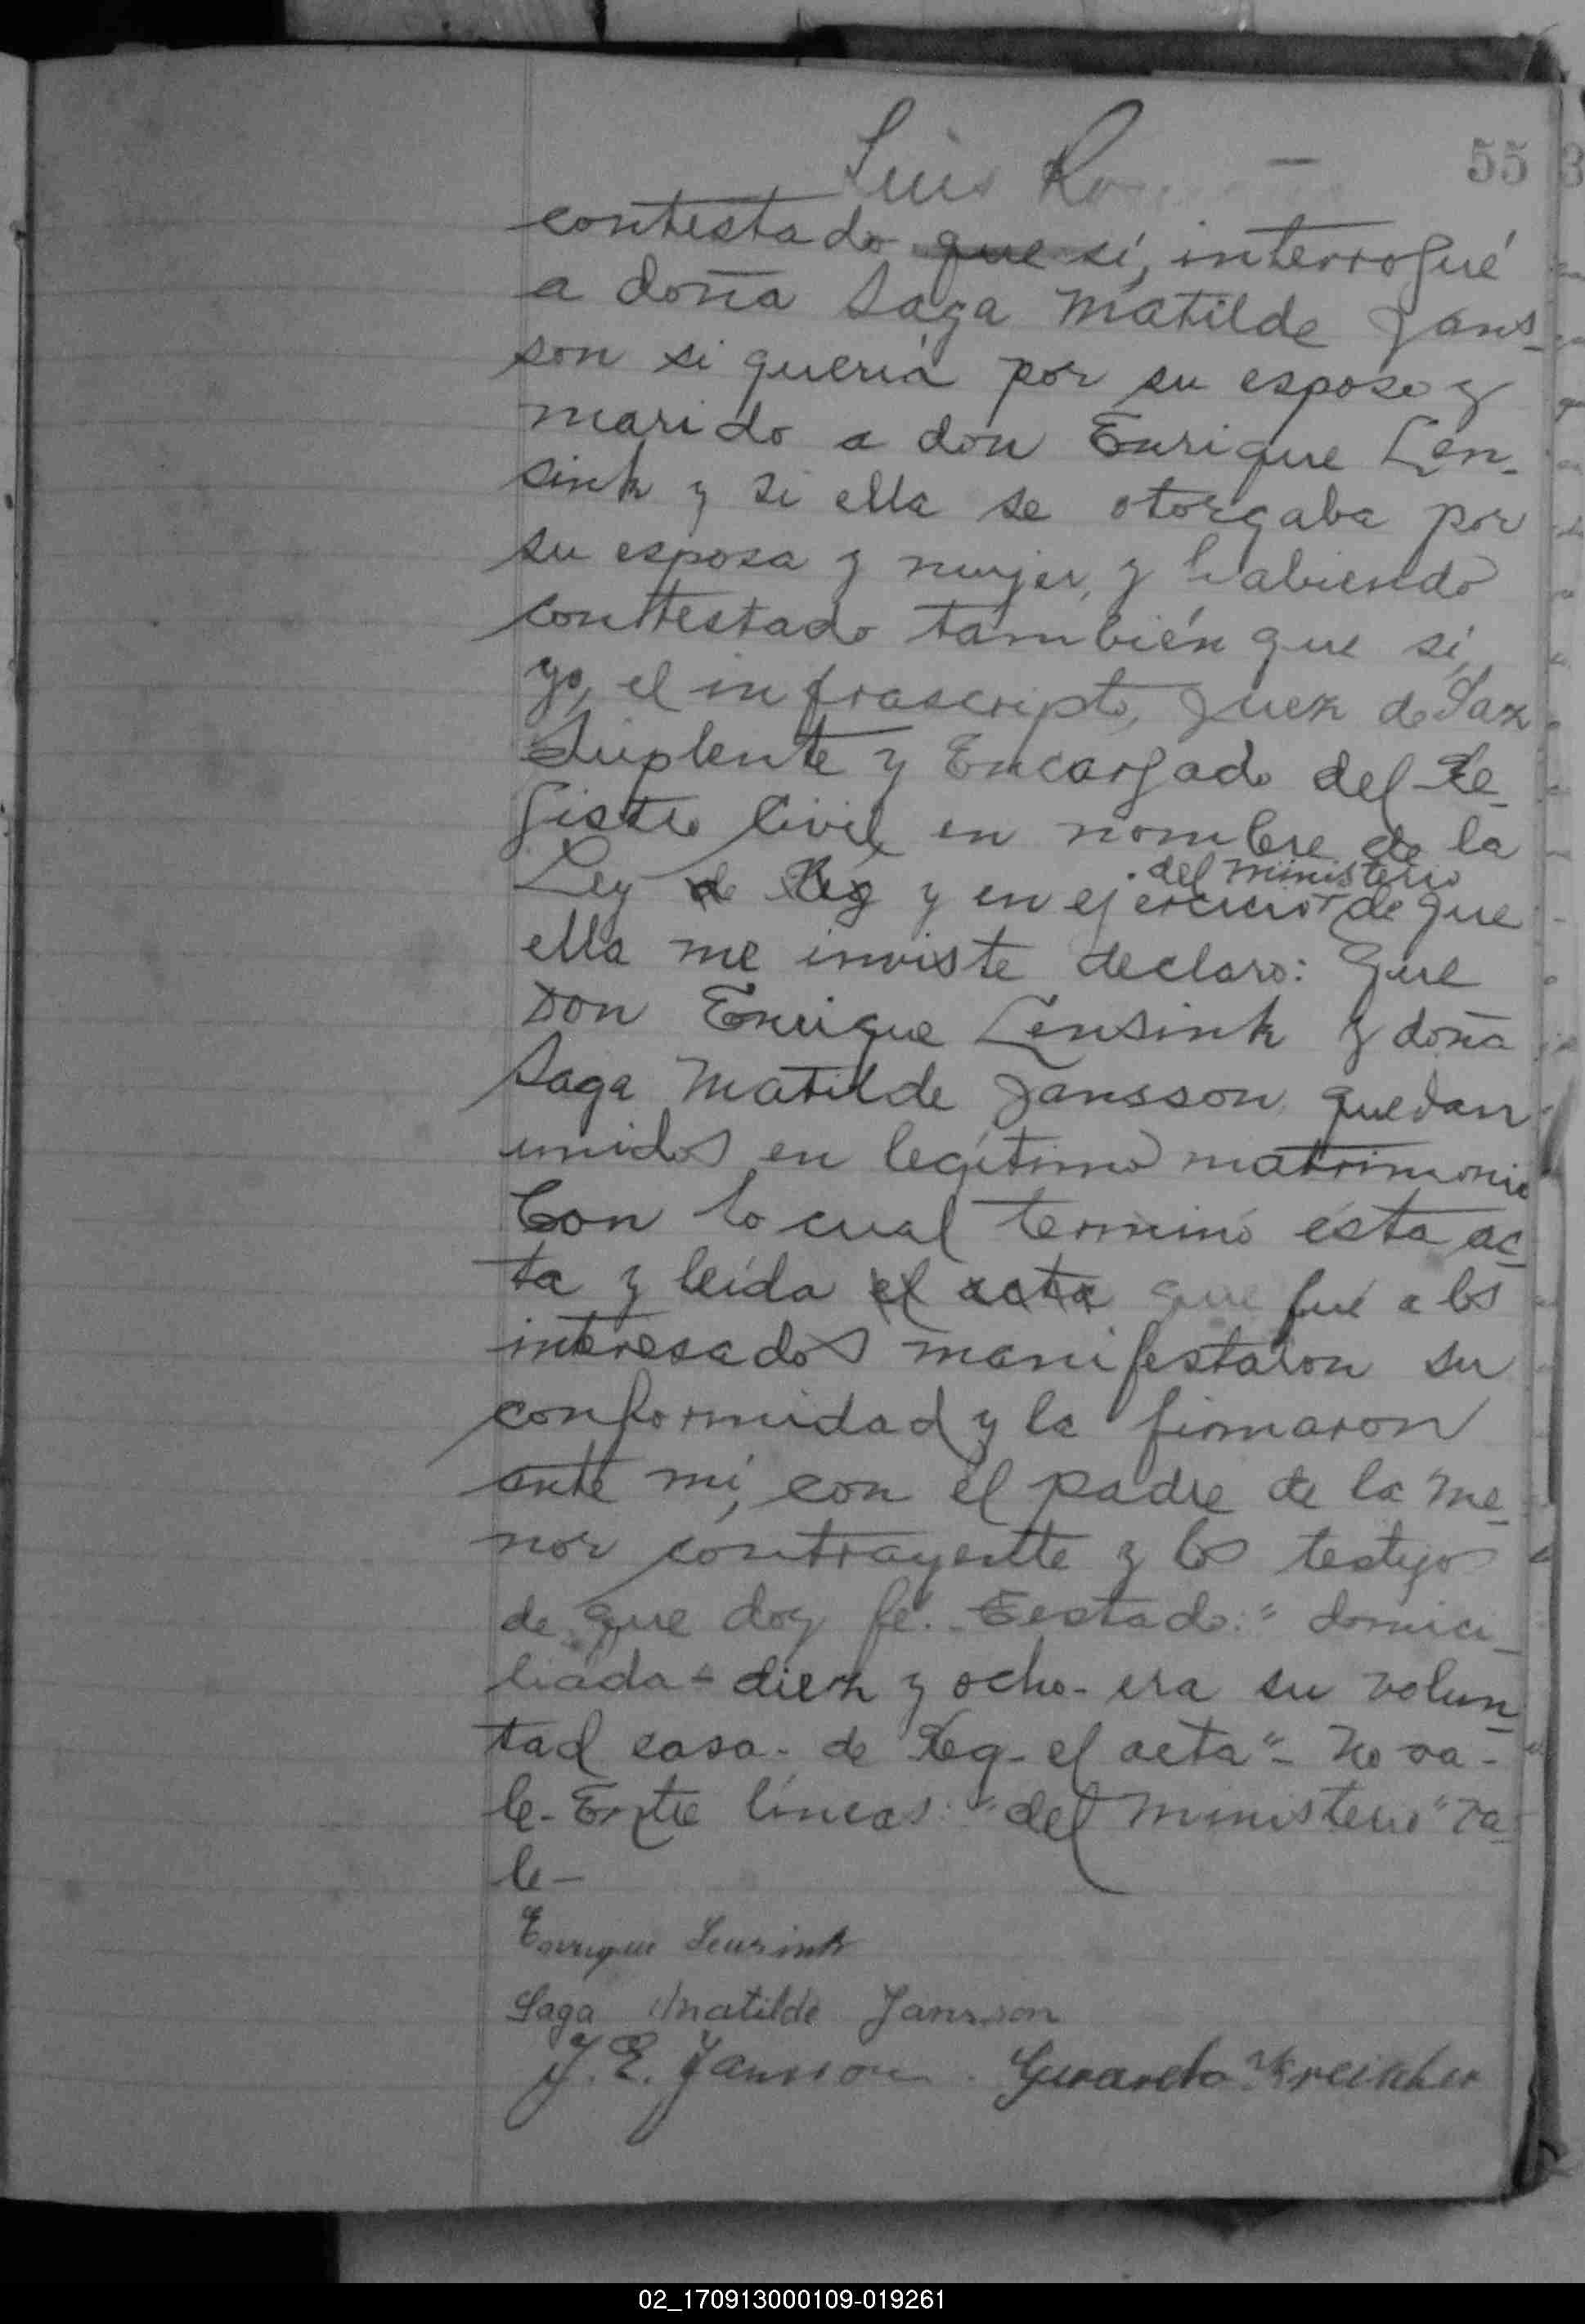 55
Luis
contestado que sí, interrogué
a doña Saga Matilde Jans-
son si quería por su esposo y
marido a don Enrique Len-
sink y si ella se otorgaba por
su esposa y mujer, y habiendo
conttestado también que sí,
yo, el infrascripto, Juez de Paz
Suplente y Encargado del Re-
gistro Civil en nombre de la
Ley de Reg y en ejercicio del Ministerio de que
ella me inviste declaro: Que
Don Enrique Lensink y doña
Saga Matilde Jansson quedan
unidos en legítimo matrimonio
Con lo cual terminó ésta ac-
ta y leída el acta que fué a los
interesados manifestaron su
conformidad y la firmaron
ante mí, con el padre de la me-
nor contrayentte y los testigos
de que doy fé.- Testado: "domici-
liada - diez y ocho - era su volun-
tad casa - de Reg - el acta" - No va-
le - Entre líneas: "del Ministerio" Va-
le -
Enrique Lensink
Saga Matilde Jansson
J. E. Jansson. Gerardo
02_170913000109-019261